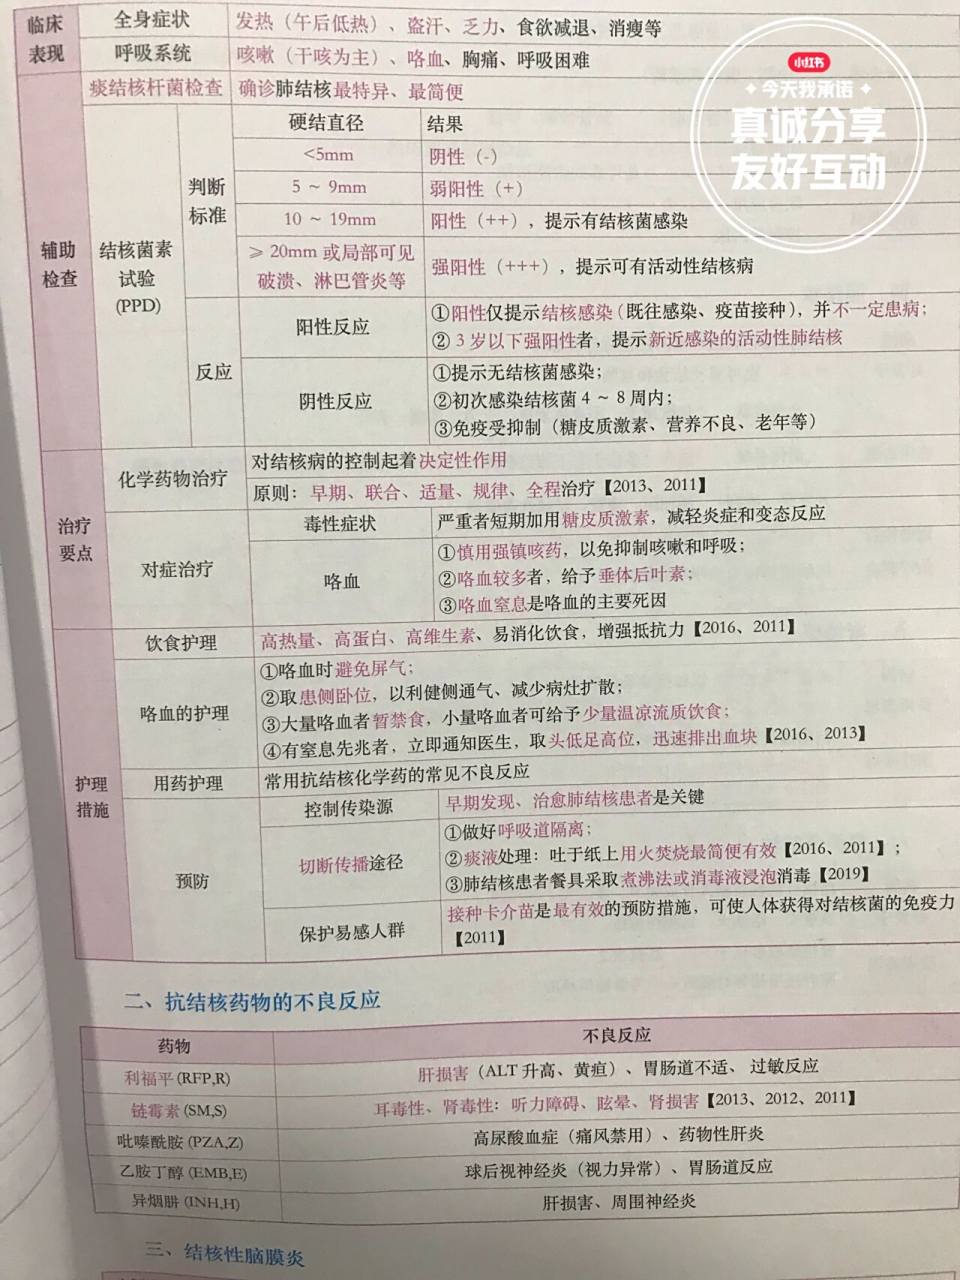 临床表现
全身症状
发热（午后低热）、盗汗、乏力、食欲减退、消瘦等
呼吸系统
咳嗽（干咳为主）、咯血、胸痛、呼吸困难
小红书
今天我承诺
真诚分享
友好互动
辅助检查
痰结核杆菌检查
确诊肺结核最特异、最简便
结核菌素试验(PPD)
判断标准
硬结直径
结果
<5mm
阴性（-）
5 ~ 9mm
弱阳性（+）
10 ~ 19mm
阳性（++），提示有结核菌感染
≥ 20mm 或局部可见
破溃、淋巴管炎等
强阳性（+++），提示可有活动性结核病
反应
阳性反应
①阳性仅提示结核感染（既往感染、疫苗接种），并不一定患病；
② 3 岁以下强阳性者，提示新近感染的活动性肺结核
阴性反应
①提示无结核菌感染；
②初次感染结核菌 4 ~ 8 周内；
③免疫受抑制（糖皮质激素、营养不良、老年等）
治疗要点
化学药物治疗
对结核病的控制起着决定性作用
原则：早期、联合、适量、规律、全程治疗【2013、2011】
对症治疗
毒性症状
严重者短期加用糖皮质激素，减轻炎症和变态反应
咯血
①慎用强镇咳药，以免抑制咳嗽和呼吸；
②咯血较多者，给予垂体后叶素；
③咯血窒息是咯血的主要死因
护理措施
饮食护理
高热量、高蛋白、高维生素、易消化饮食，增强抵抗力【2016、2011】
咯血的护理
①咯血时避免屏气；
②取患侧卧位，以利健侧通气、减少病灶扩散；
③大量咯血者暂禁食，小量咯血者可给予少量温凉流质饮食；
④有窒息先兆者，立即通知医生，取头低足高位，迅速排出血块【2016、2013】
用药护理
常用抗结核化学药的常见不良反应
预防
控制传染源
早期发现、治愈肺结核患者是关键
切断传播途径
①做好呼吸道隔离；
②痰液处理：吐于纸上用火焚烧最简便有效【2016、2011】；
③肺结核患者餐具采取煮沸法或消毒液浸泡消毒【2019】
保护易感人群
接种卡介苗是最有效的预防措施，可使人体获得对结核菌的免疫力
【2011】
二、抗结核药物的不良反应
药物
不良反应
利福平 (RFP,R)
肝损害（ALT 升高、黄疸）、胃肠道不适、过敏反应
链霉素 (SM,S)
耳毒性、肾毒性：听力障碍、眩晕、肾损害【2013、2012、2011】
吡嗪酰胺 (PZA,Z)
高尿酸血症（痛风禁用）、药物性肝炎
乙胺丁醇 (EMB,E)
球后视神经炎（视力异常）、胃肠道反应
异烟肼 (INH,H)
肝损害、周围神经炎
三、结核性脑膜炎